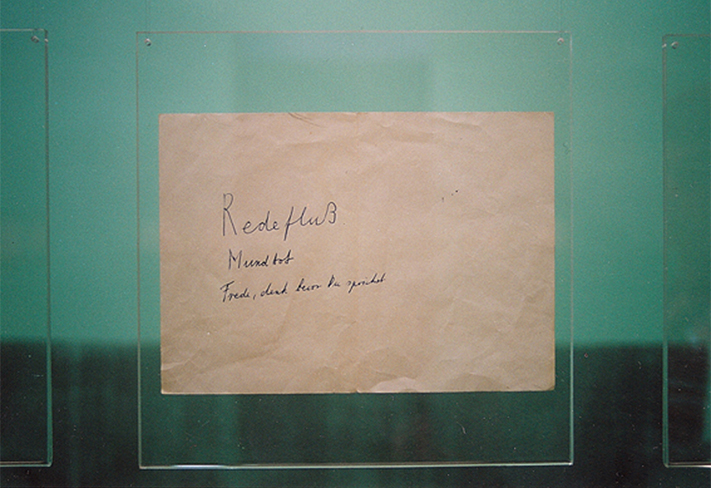 Redefluß
Mundtot
Frede, denk bevor Du sprichst